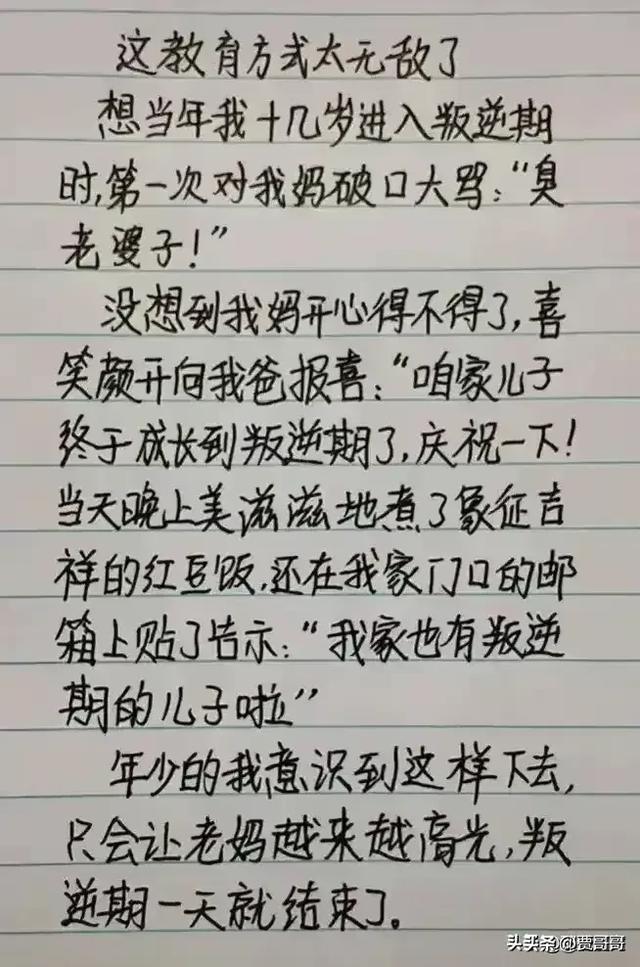 这教育方式太无敌了
想当年我十几岁进入叛逆期
时,第一次对我妈破口大骂:“臭
老婆子!”
没想到我妈开心得不得了,喜
笑颜开向我爸报喜:“咱家儿子
终于成长到叛逆期了,庆祝一下!
当天晚上美滋滋地煮了象征吉
祥的红豆饭,还在我家门口的邮
箱上贴了告示:“我家也有叛逆
期的儿子啦”
年少的我意识到这样下去,
只会让老妈越来越高光,叛
逆期一天就结束了。
头条@贾哥哥